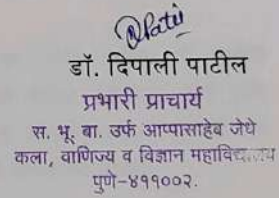 डॉ. दिपाली पाटील
प्रभारी प्राचार्य
स. भू. बा. उर्फ आप्पासाहेब जेधे
कला, वाणिज्य व विज्ञान महाविद्यालय
पुणे-४११००२.